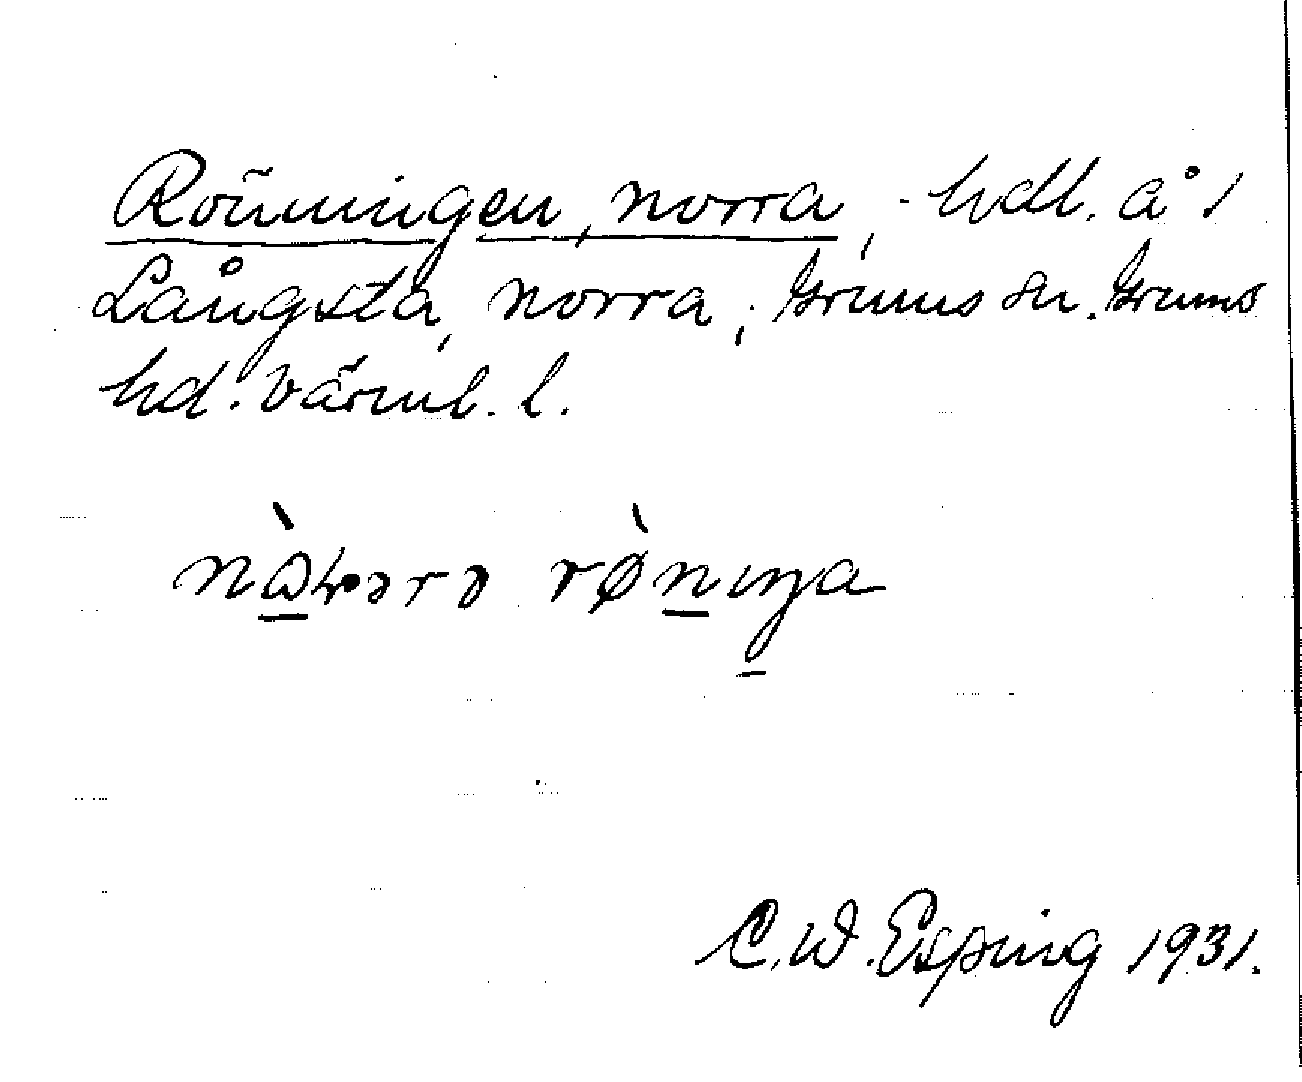 Rönningen, norra, hdl. å 1
Långsta, norra; Grums sn. Grums
hd. Värml. l.
rø̀niŋa
C.W. Esping 1931.